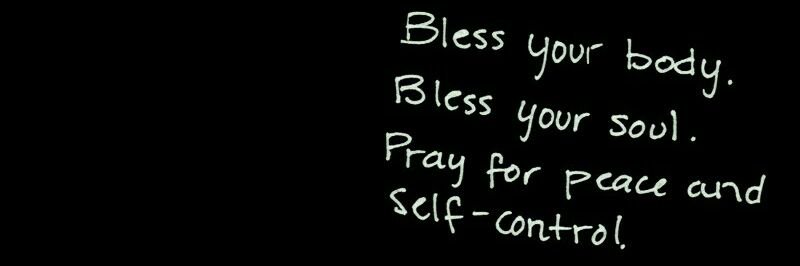 Bless your body.
Bless your soul.
Pray for peace and
self-control.